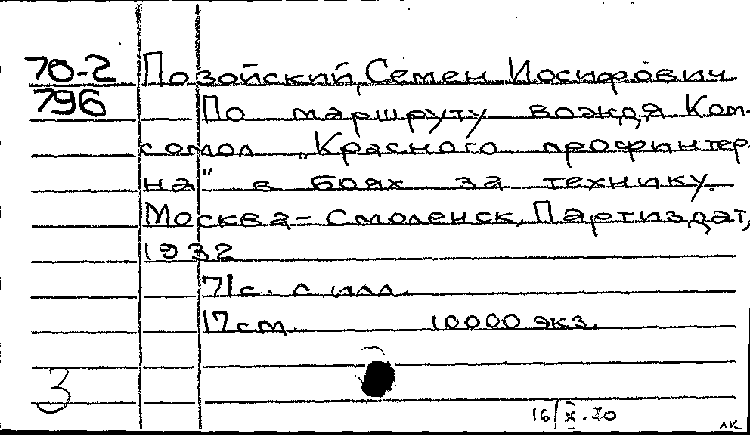 70-2 Позойский, Семен Иосифович
796 По маршруту вождя Ком-
сомол „Красного профинтер-
на" в боях за технику.
Москва - Смоленск, Партиздат,
1932
71с. с илл.
17см. 10000 экз.
3
16/X.70
ЛК